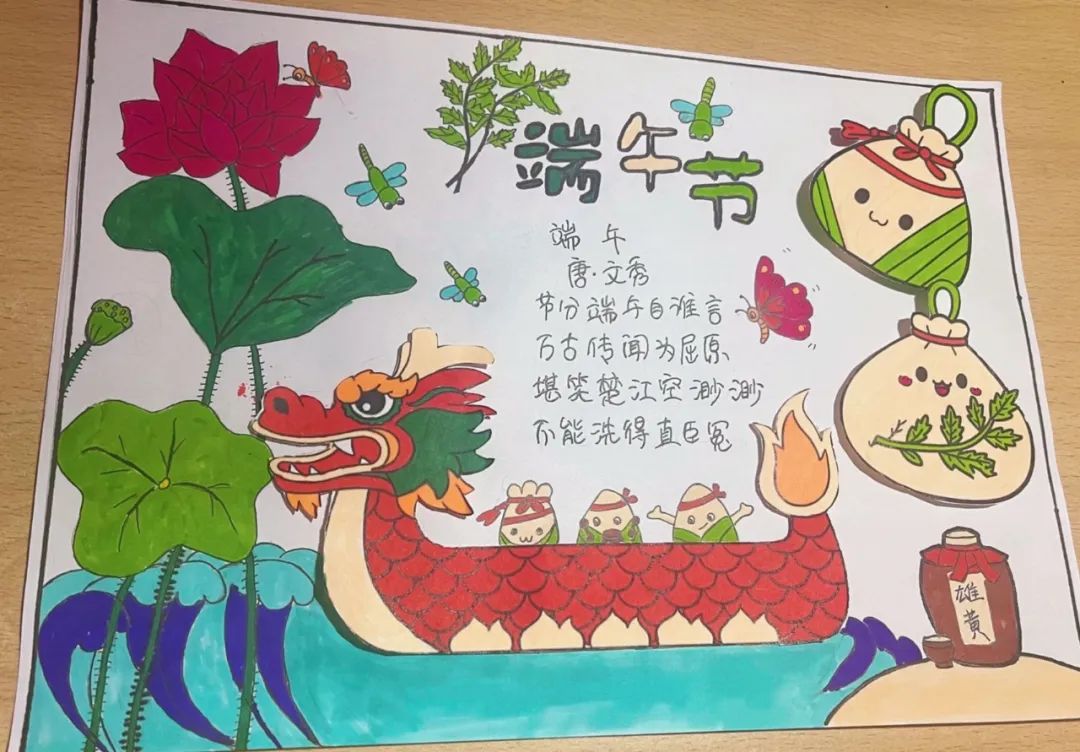 端午节
端 午
唐·文秀
节分端午自谁言
万古传闻为屈原
堪笑楚江空渺渺
不能洗得直臣冤
雄黄